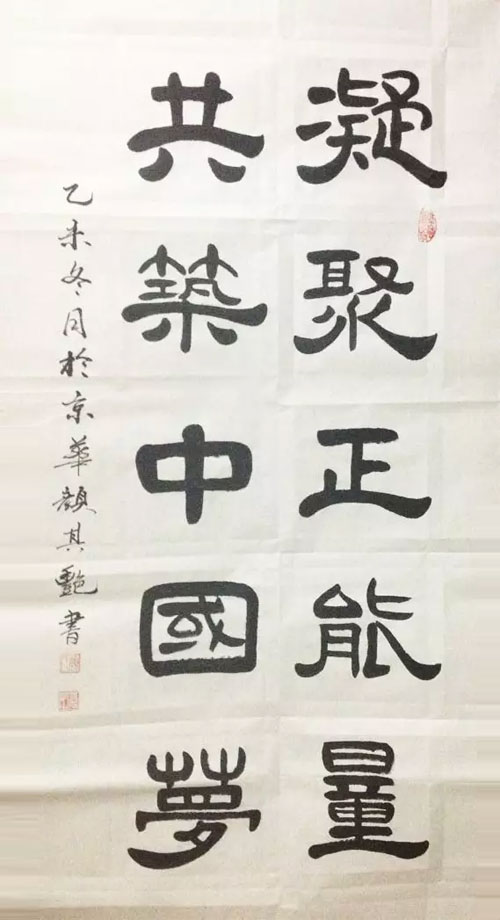 凝聚正能量
共築中國夢
乙未冬月於京華顏其艷書